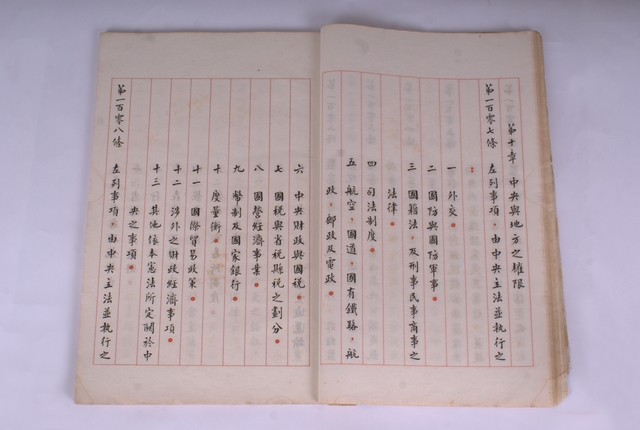 第十章 中央與地方之權限
第一百零七條 左列事項，由中央立法並執行之
：
一 外交。
二 國防與國防軍事。
三 國籍法，及刑事民事商事之
法律。
四 司法制度。
五 航空，國道，國有鐵路，航
政，郵政及電政。
六 中央財政與國稅。
七 國稅與省稅縣稅之劃分。
八 國營經濟事業。
九 幣制及國家銀行。
十 度量衡。
十一 國際貿易政策。
十二 涉外之財政經濟事項。
十三 其他依本憲法所定關於中
央之事項。
第一百零八條 左列事項，由中央立法並執行之